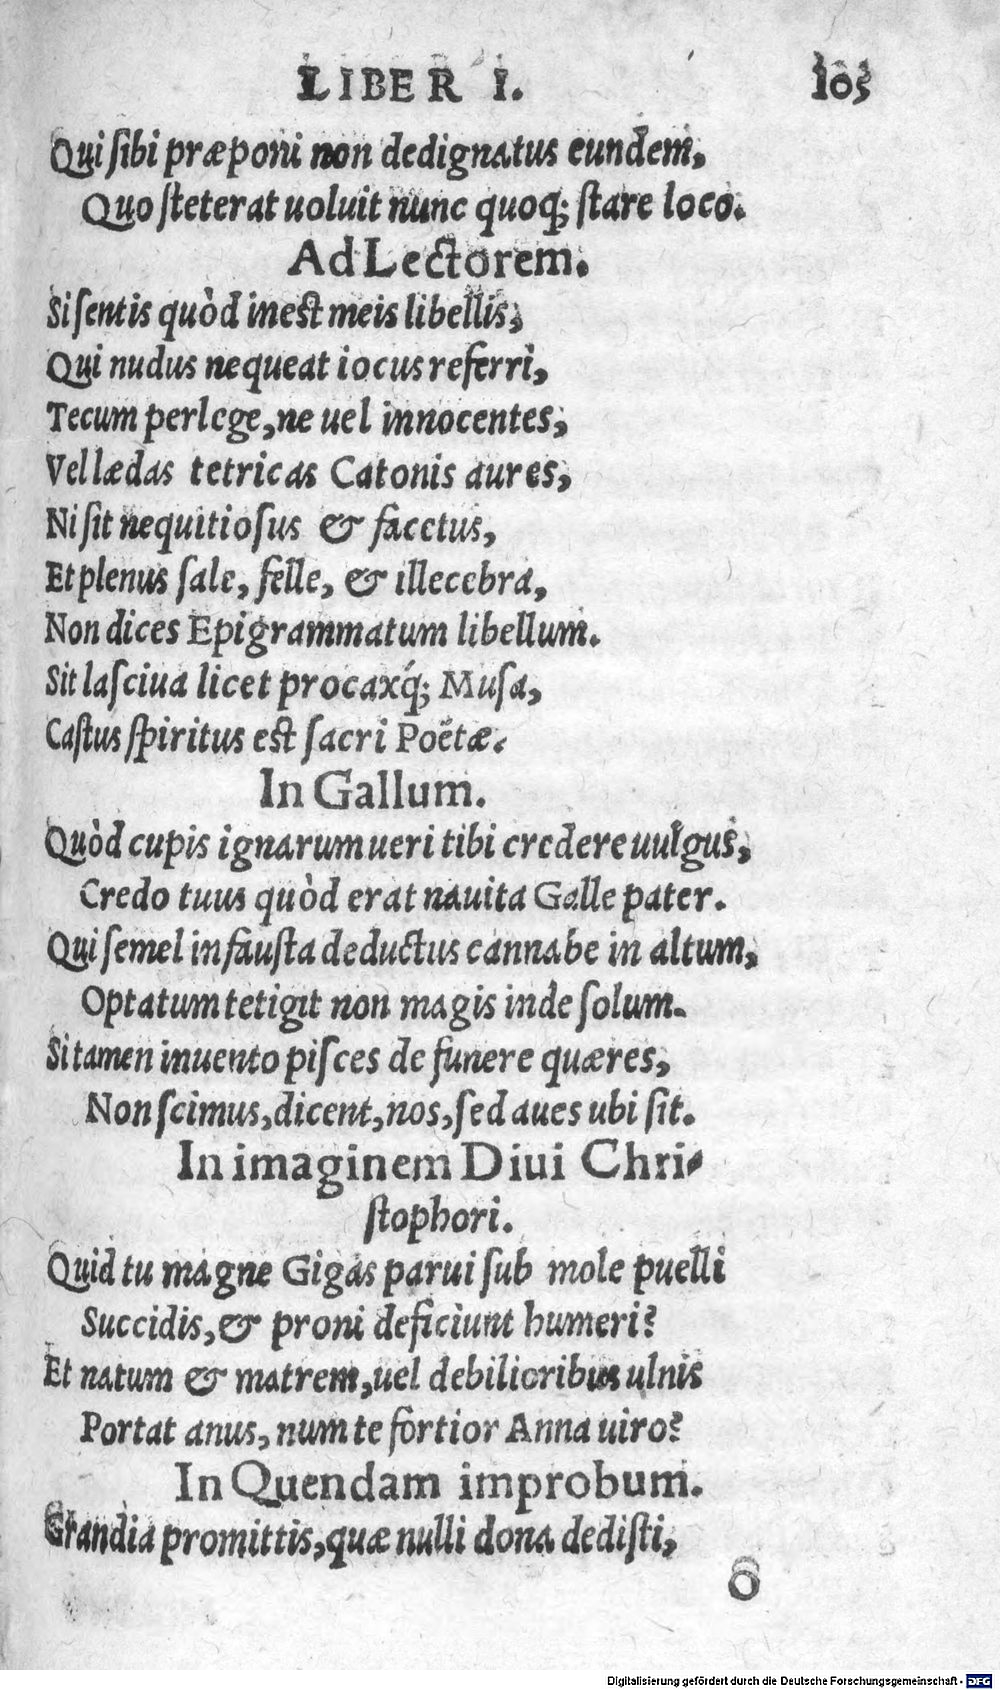 LIBER I. 105
Qui sibi præponi non dedignatus eundem,
Quo steterat uoluit nunc quoq; stare loco.
Ad Lectorem.
Si sentis quòd inest meis libellis,
Qui nudus nequeat iocus referri,
Tecum perlege, ne uel innocentes,
Vel lædas tetricas Catonis aures,
Ni sit nequitiosus & facetus,
Et plenus sale, felle, & illecebra,
Non dices Epigrammatum libellum.
Sit lasciua licet procaxq́; Musa,
Castus spiritus est sacri Poëtæ.
In Gallum.
Quòd cupis ignarum ueri tibi credere uulgus,
Credo tuus quòd erat nauita Galle pater.
Qui semel infausta deductus cannabe in altum,
Optatum tetigit non magis inde solum.
Si tamen inuento pisces de funere quæres,
Non scimus, dicent, nos, sed aues ubi sit.
In imaginem Diui Chri-
stophori.
Quid tu magne Gigas parui sub mole puelli
Succidis, & proni deficiunt humeri?
Et natum & matrem, uel debilioribus ulnis
Portat anus, num te fortior Anna uiro?
In Quendam improbum.
Grandia promittis, quæ nulli dona dedisti,
O
Digitalisierung gefördert durch die Deutsche Forschungsgemeinschaft - DFG